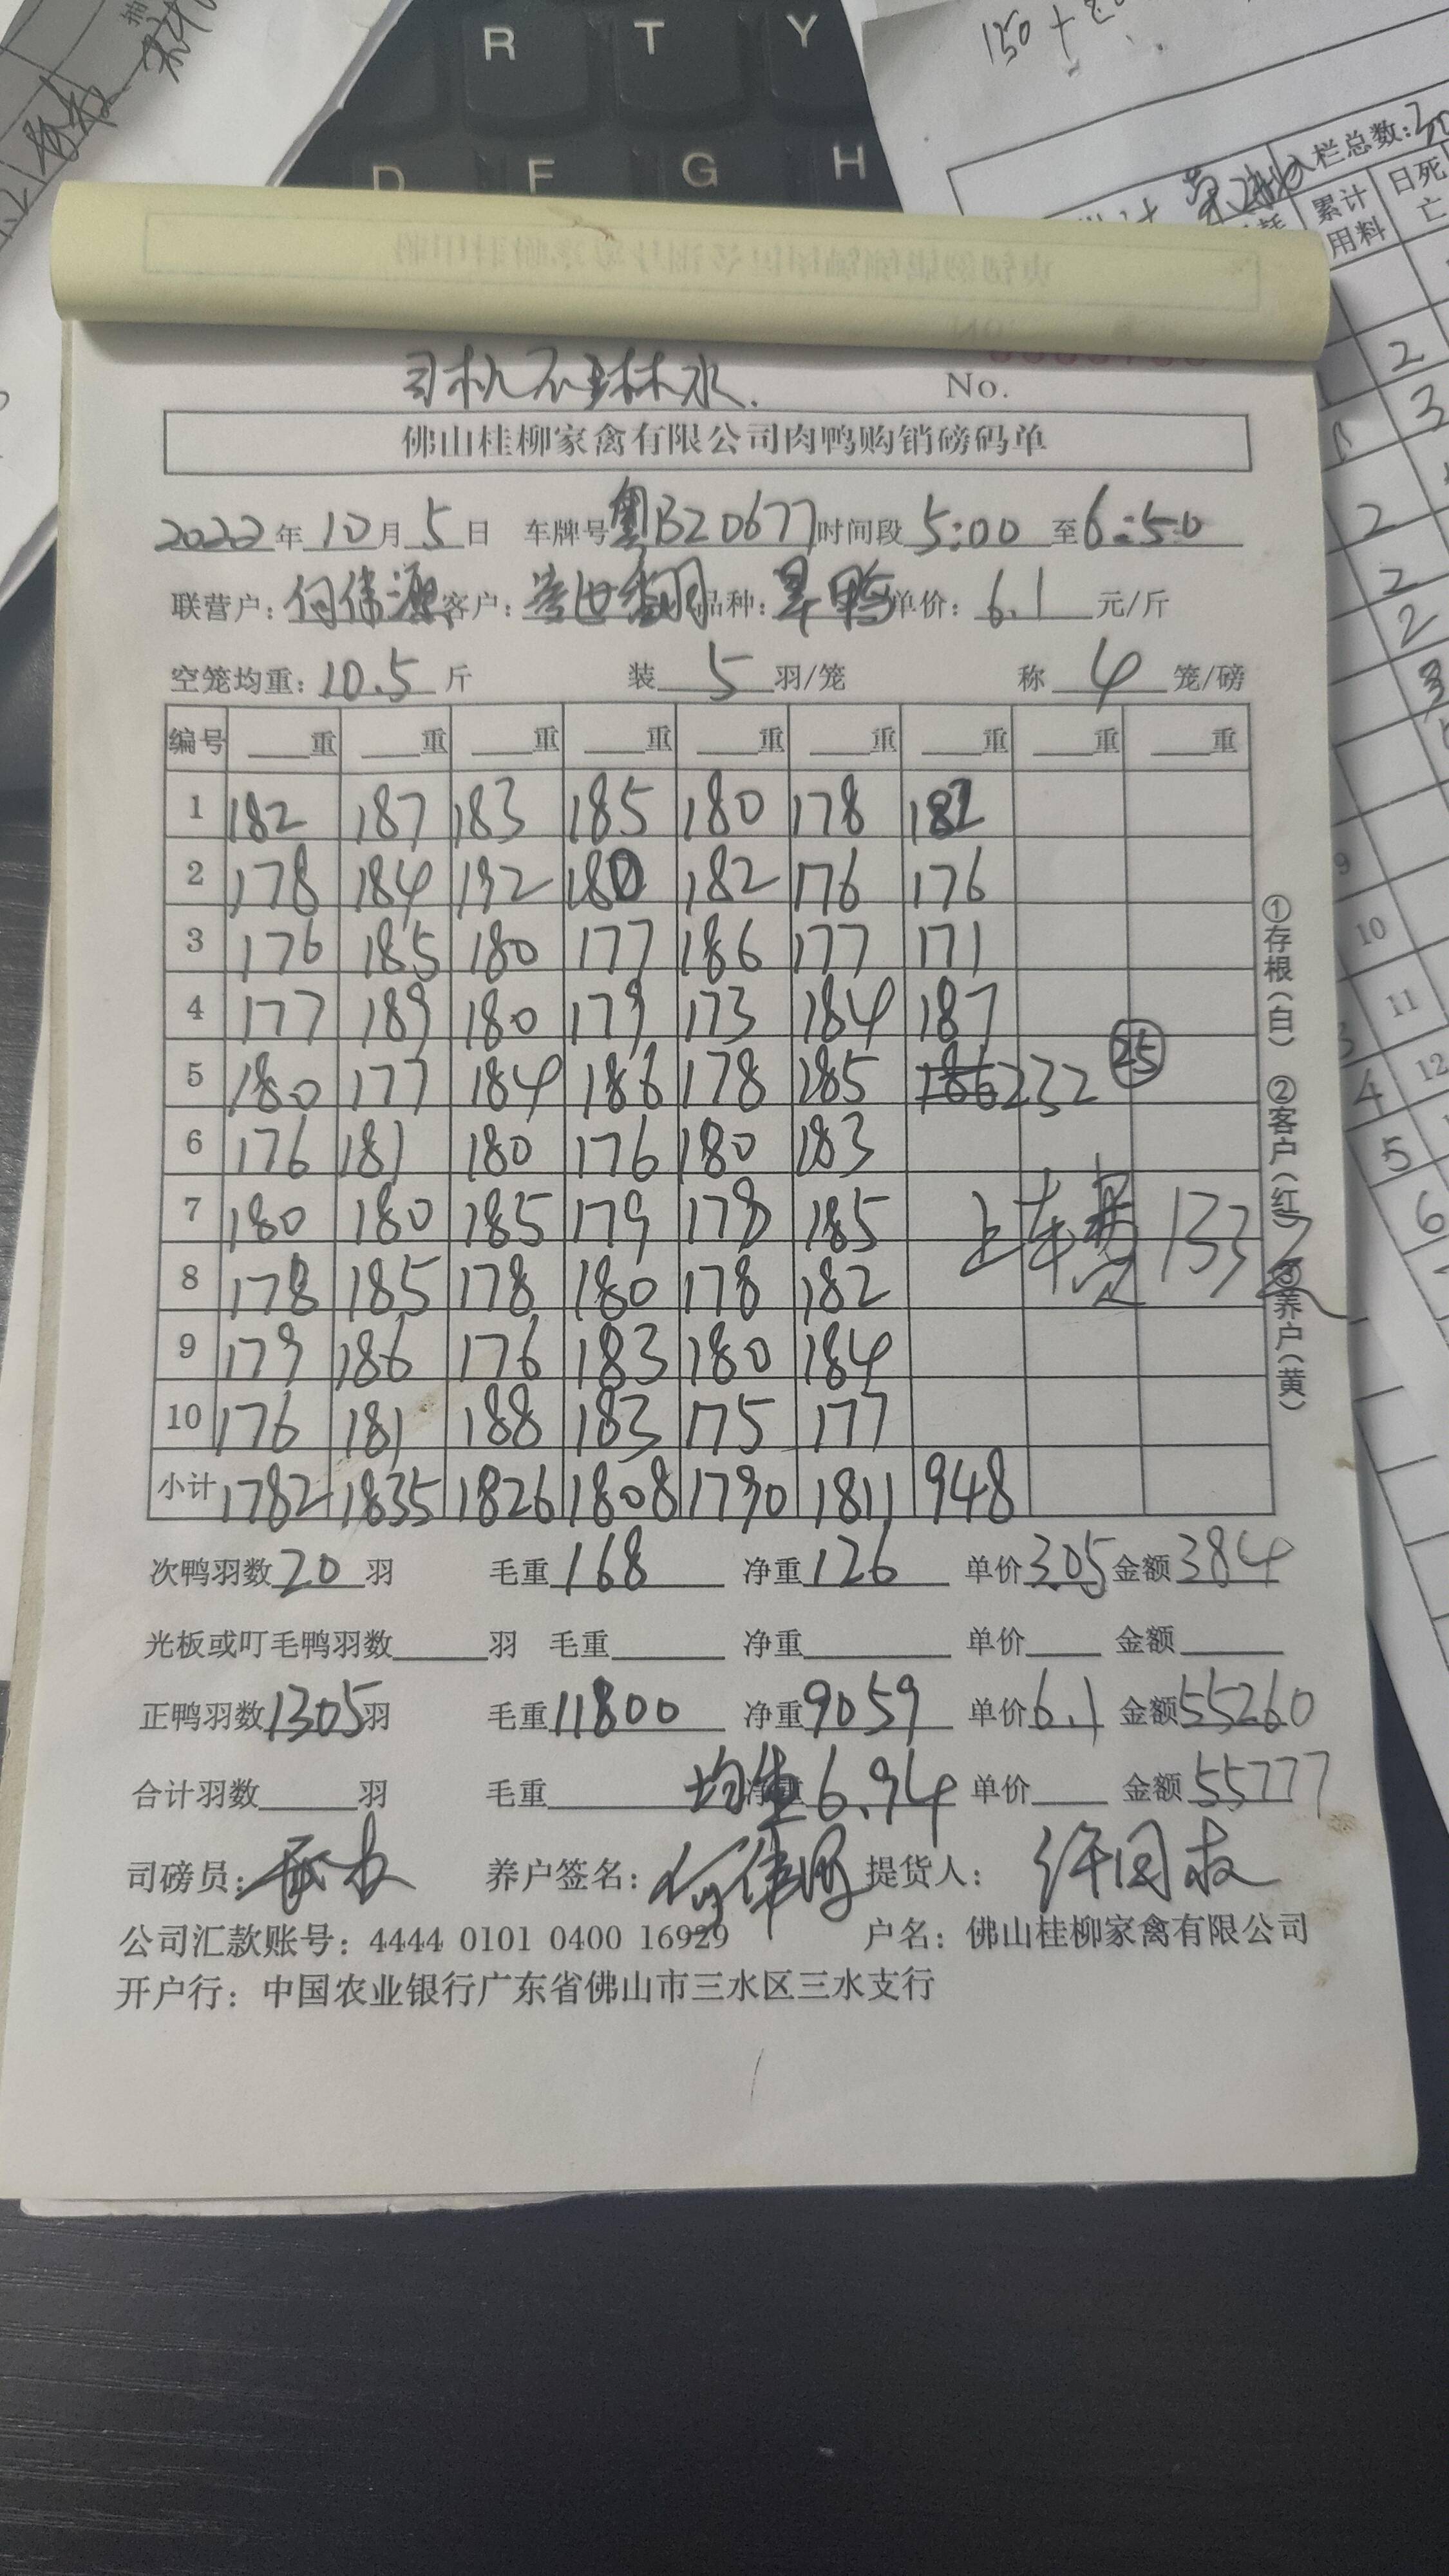 R T Y
D F G H
150 +
入栏总数:
累计用料 日死亡
司机不淋水.
No.
佛山桂柳家禽有限公司肉鸭购销磅码单
2022年10月5日 车牌号粤BZ0677时间段5:00至6:50
联营户:何伟源 客户: 品种:旱鸭 单价:6.1元/斤
空笼均重:10.5斤 装5羽/笼 称4笼/磅
编号 重 重 重 重 重 重 重 重 重
1 182 187 183 185 180 178 182
2 178 184 192 180 182 176 176
3 176 185 180 177 186 177 171
4 177 189 180 179 173 184 187
5 180 177 184 186 178 185 186 232 25
6 176 181 180 176 180 183
7 180 180 185 179 178 185
上车费 133
8 178 185 178 180 178 182
9 179 186 176 183 180 184
10 176 181 188 183 175 177
小计 1782 1835 1826 1808 1790 1811 948
①存根(白) ②客户(红) ③养户(黄)
次鸭羽数20羽 毛重168 净重126 单价3.05 金额384
光板或叮毛鸭羽数 羽 毛重 净重 单价 金额
正鸭羽数1305羽 毛重11800 净重9059 单价6.1 金额55260
合计羽数 羽 毛重 均重 净重6.94 单价 金额55777
司磅员: 养户签名:何伟源 提货人:许国枝
公司汇款账号:4444 0101 0400 16929 户名:佛山桂柳家禽有限公司
开户行:中国农业银行广东省佛山市三水区三水支行